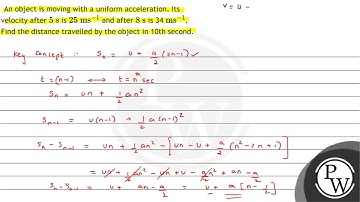 An object is moving with a uniform acceleration. Its
velocity after 5 s is 25 ms⁻¹ and after 8 s is 34 ms⁻¹.
Find the distance travelled by the object in 10th second.
v = u -
Key Concept :- Sₙ = u + a/2 (2n-1) ✓
t = (n-1) ⟷ t = nᵗʰ sec
Sₙ = un + 1/2 an²
Sₙ₋₁ = u(n-1) + 1/2 a(n-1)²
Sₙ - Sₙ₋₁ = un + 1/2 an² - [un - u + a/2 (n² - 2n + 1)]
= un + 1/2 an² - un + u - a/2 n² + an - a/2
Sₙ - Sₙ₋₁ = u + an - a/2 = u + a [n - 1/2]
PW